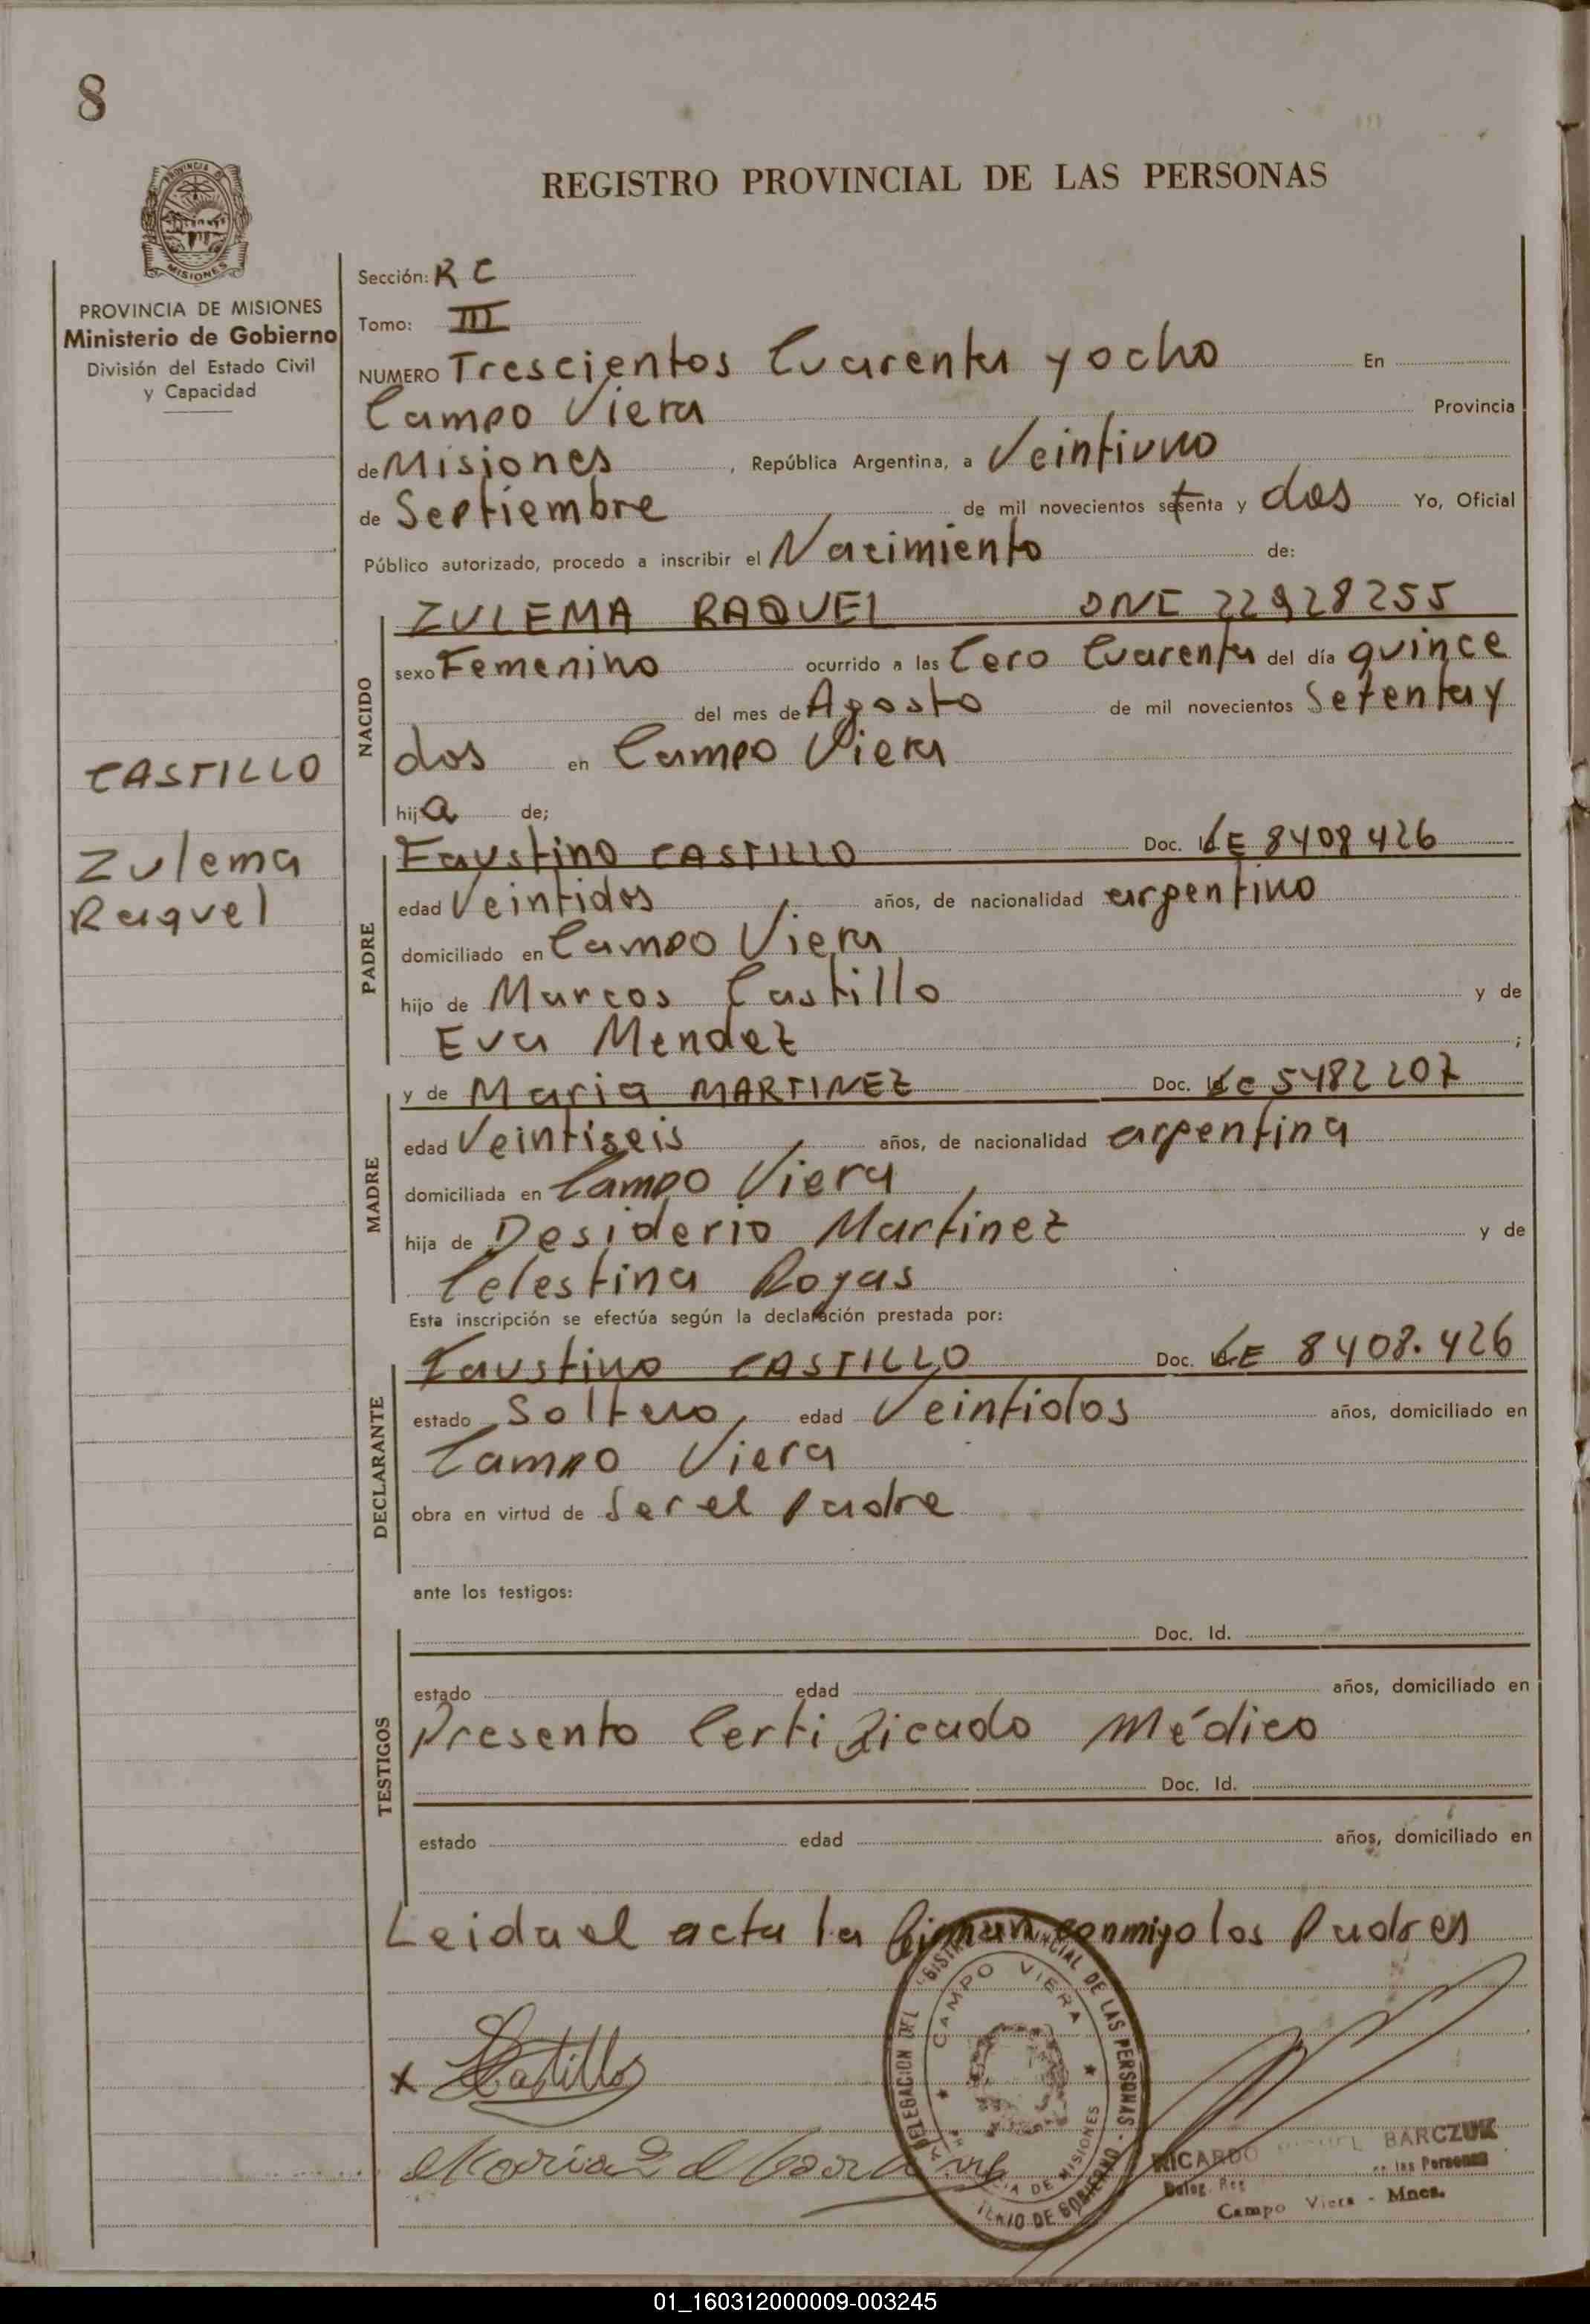 8
REGISTRO PROVINCIAL DE LAS PERSONAS
PROVINCIA DE MISIONES
Ministerio de Gobierno
División del Estado Civil
y Capacidad
CASTILLO
Zulema
Raquel
Sección: R C
Tomo: III
NUMERO Trescientos Cuarenta y ocho En
Campo Viera Provincia
de Misiones , República Argentina, a Veintiuno
de Septiembre de mil novecientos setenta y dos Yo, Oficial
Público autorizado, procedo a inscribir el Nacimiento de:
NACIDO
ZULEMA RAQUEL DNI 22928255
sexo Femenino ocurrido a las Cero Cuarenta del día quince
del mes de Agosto de mil novecientos Setenta y
dos en Campo Viera
hija de;
PADRE
Faustino CASTILLO Doc. LE 8408426
edad Veintidos años, de nacionalidad argentino
domiciliado en Campo Viera
hijo de Marcos Castillo y de
Eva Mendez ;
MADRE
y de Maria MARTINEZ Doc. LC 5482207
edad Veintiseis años, de nacionalidad argentina
domiciliada en Campo Viera
hija de Desiderio Martinez y de
Celestina Rojas
Esta inscripción se efectúa según la declaración prestada por:
DECLARANTE
Faustino CASTILLO Doc. LE 8408.426
estado Soltero, edad Veintidos años, domiciliado en
Campo Viera
obra en virtud de Ser el Padre
ante los testigos:
TESTIGOS
Doc. Id.
estado edad años, domiciliado en
Presento Certificado Médico
Doc. Id.
estado edad años, domiciliado en
Leida el acta la firman conmigo los Padres
x Castillo
DELEGACION DEL REGISTRO PROVINCIAL DE LAS PERSONAS
CAMPO VIERA
DE MISIONES
DE GOBIERNO
RICARDO BARCZUK
Deleg. Reg. las Personas
Campo Viera - Mnes.
01_160312000009-003245